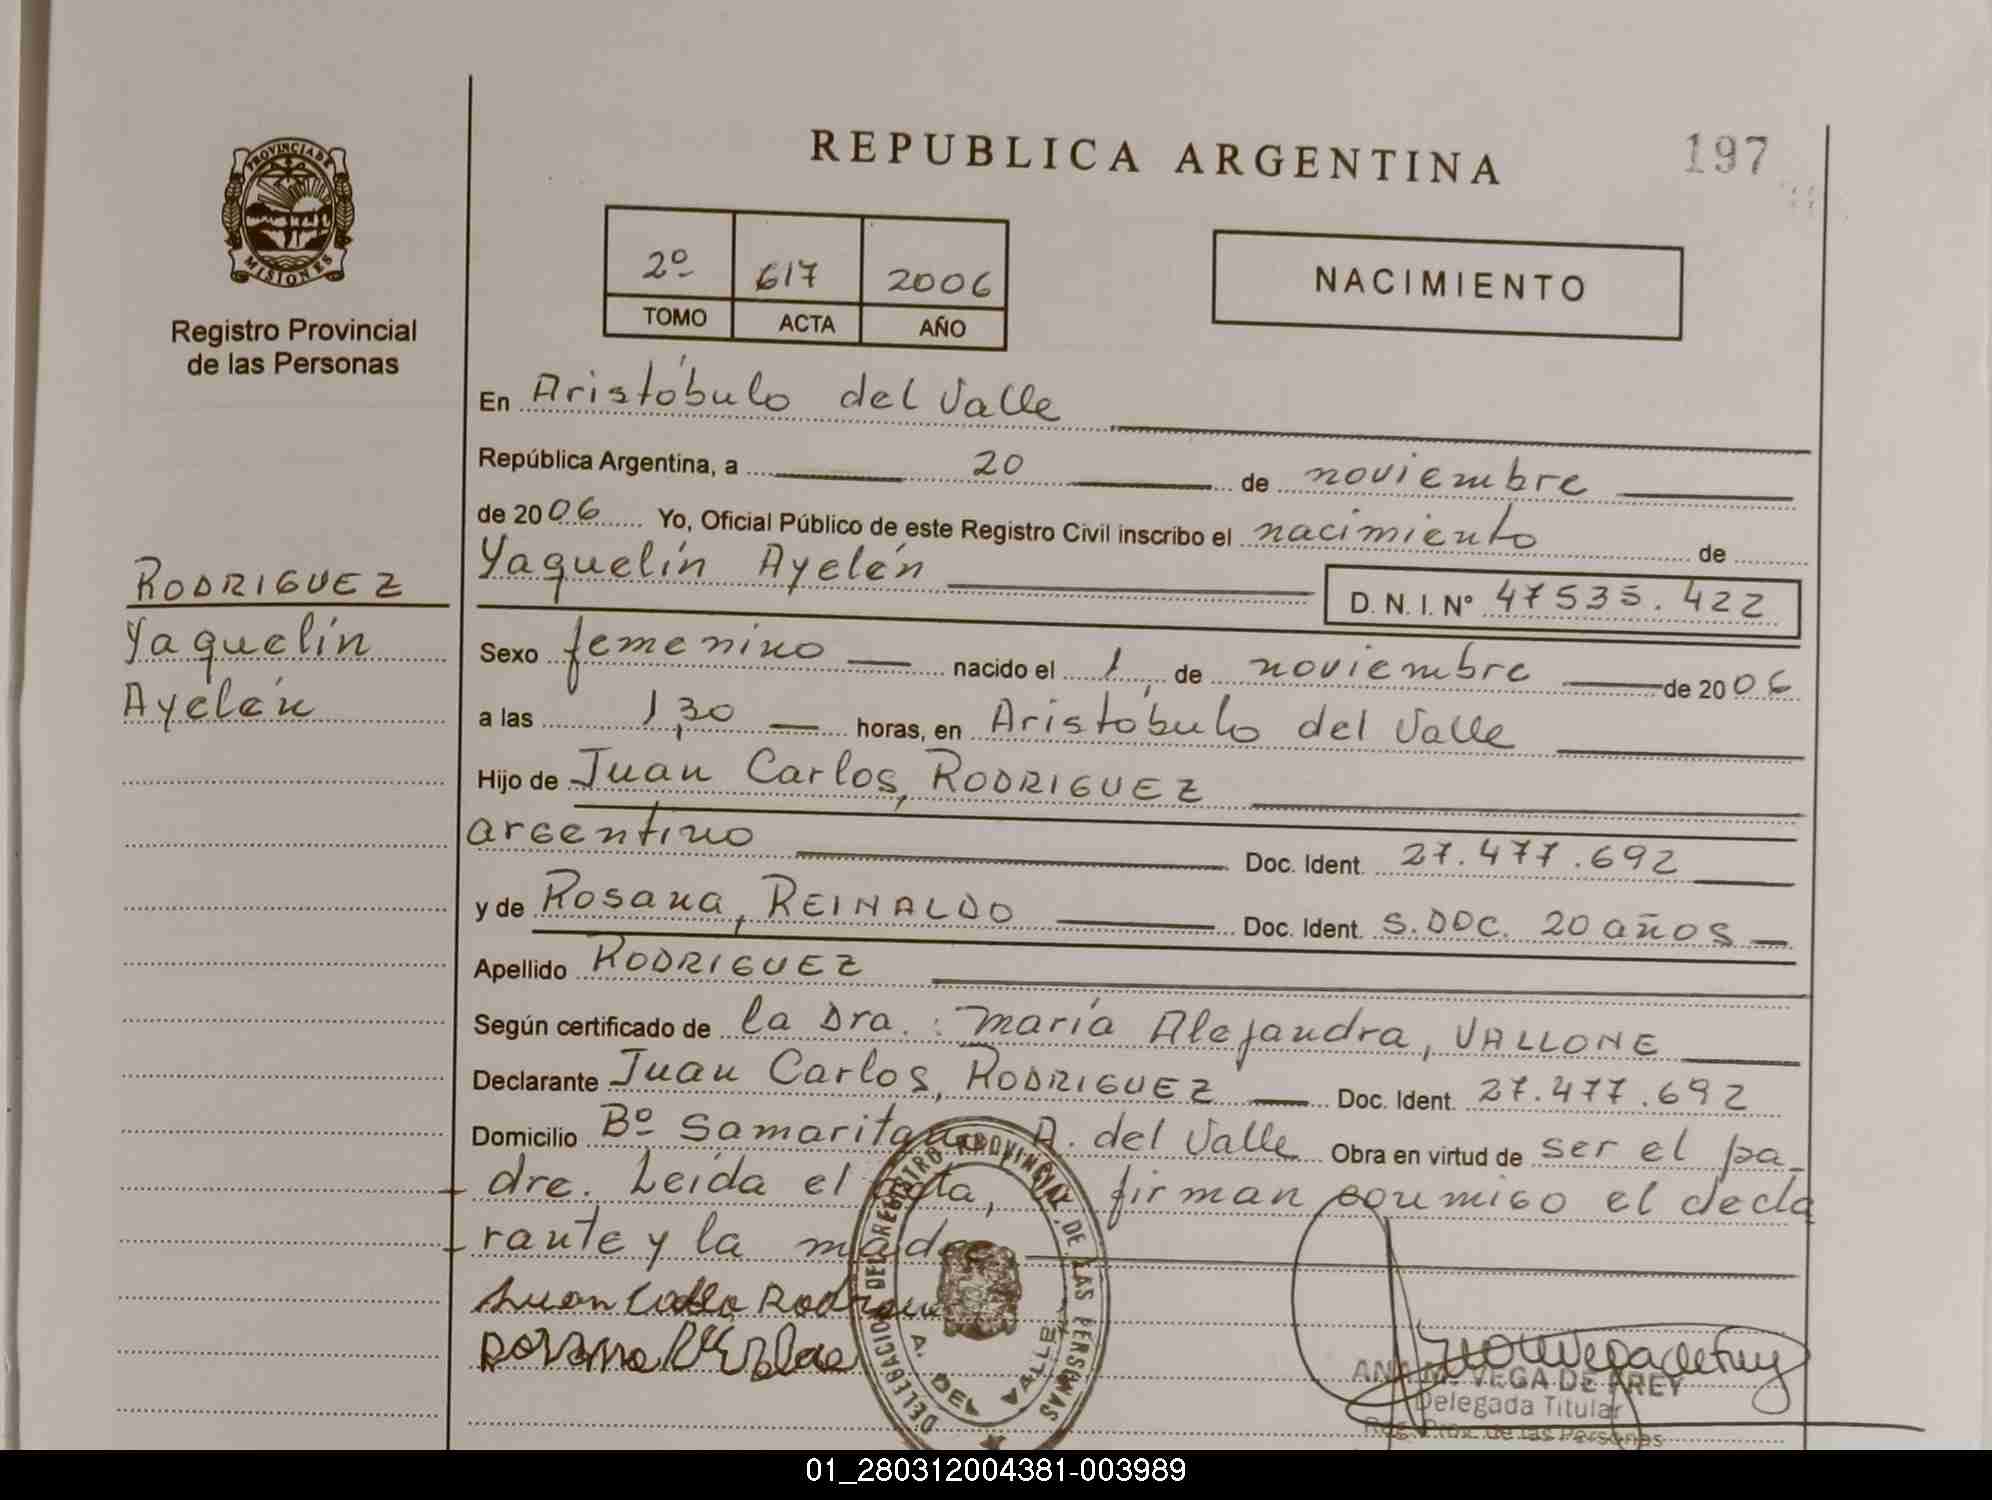 REPUBLICA ARGENTINA
197
PROVINCIA DE
MISIONES
Registro Provincial
de las Personas
2º 617 2006
TOMO ACTA AÑO
NACIMIENTO
En Aristóbulo del Valle
República Argentina, a 20 de noviembre
de 2006 Yo, Oficial Público de este Registro Civil inscribo el nacimiento de
Yaquelín Ayelén
D. N. I. Nº 47535.422
RODRIGUEZ
Yaquelín
Ayelén
Sexo femenino nacido el 1 de noviembre de 2006
a las 1,30 horas, en Aristóbulo del Valle
Hijo de Juan Carlos, RODRIGUEZ
argentino Doc. Ident. 27.477.692
y de Rosana, REINALDO Doc. Ident. S.DOC. 20 años
Apellido RODRIGUEZ
Según certificado de la Dra.: María Alejandra, VALLONE
Declarante Juan Carlos, RODRIGUEZ Doc. Ident. 27.477.692
Domicilio Bº Samaritano A. del Valle Obra en virtud de ser el pa-
dre. Leída el acta, la firman conmigo el decla
rante y la madre
Juan Carlos
DELEGACION DEL REGISTRO PROVINCIAL DE LAS PERSONAS
A. DEL VALLE
ANA M. VEGA DE FREY
Delegada Titular
Reg. Prov. de las Personas
01_280312004381-003989